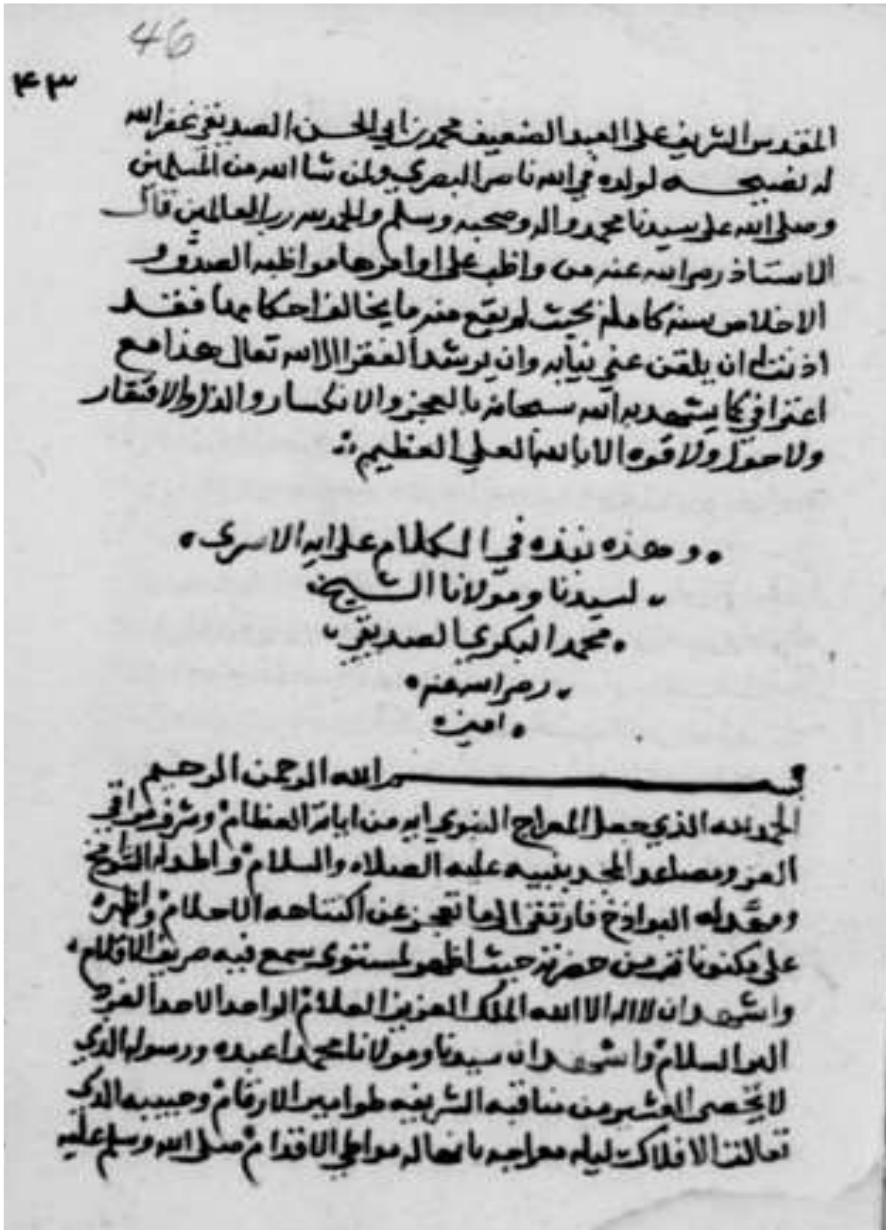 46
٤٣
المقدس الشريف على العبد الضعيف محمد بن ابي الحسن الصديقي غفر الله
له نصيحه لولده في الله ناصر البصري ولمن شا الله من المسلمين
وصلى الله على سيدنا محمد واله وصحبه وسلم والحمد لله رب العالمين قال
الاستاذ رضي الله عنه من واظب على اوامرها مواظبه الصدق و
الاخلاص سنه كامله بحيث لم يقع منه ما يخالف احكامها فقد
اذنت له ان يلقن عني نيابه وان يرشد الفقرا الى الله تعالى هذا مع
اعترافي كما يشهد به الله سبحانه بالعجز والانكسار والذل والافتقار
ولا حول ولا قوه الا بالله العلي العظيم
وهذه نبذه في الكلام على ايه الاسرى
لسيدنا ومولانا الشيخ
محمد البكري الصديقي
رضي الله عنه
امين
بسم الله الرحمن الرحيم
الحمد لله الذي جعل المعراج النبوي ايه من اياته العظام وشرف مراقي
العز ومصاعد المجد بنبيه عليه الصلاه والسلام
البواذخ فارتقى الى ما تعجز عن اكتناهه الاحلام
على مكنونات من حضرته حيث ظهر لمستوى يسمع فيه صريف الاقلام
واشهد ان لا اله الا الله الملك العزيز العلام الواحد الاحد الفرد
البر السلام واشهد ان سيدنا ومولانا محمدا عبده ورسوله الذي
لا يحصى العشر من مناقبه الشريفه طوامير الارقام وحبيبه الذي
تعالت الافلاك ليله معراجه بانعاله مواطي الاقدام صلى الله وسلم عليه